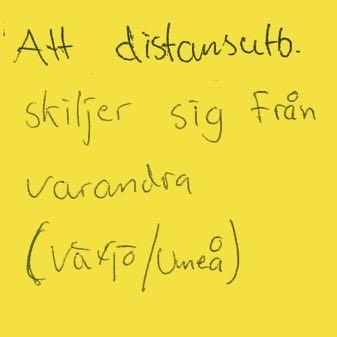 Att distansutb.
skiljer sig från
varandra
(Växjö/Umeå)